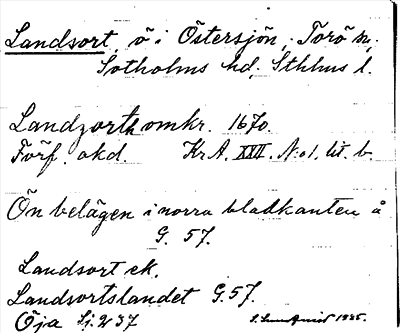 Landsort, ö i Östersjön, Torö sn,
Sotholms hd, Sthlms l.
Landzorth omkr. 1670.
Förf. okd. Kr A. XXII. N:o 1. lit. b.
Ön belägen i norra bladkanten å
G. 57.
Landsort ek.
Landsortslandet G.57.
Öja Sj. 237 1935.